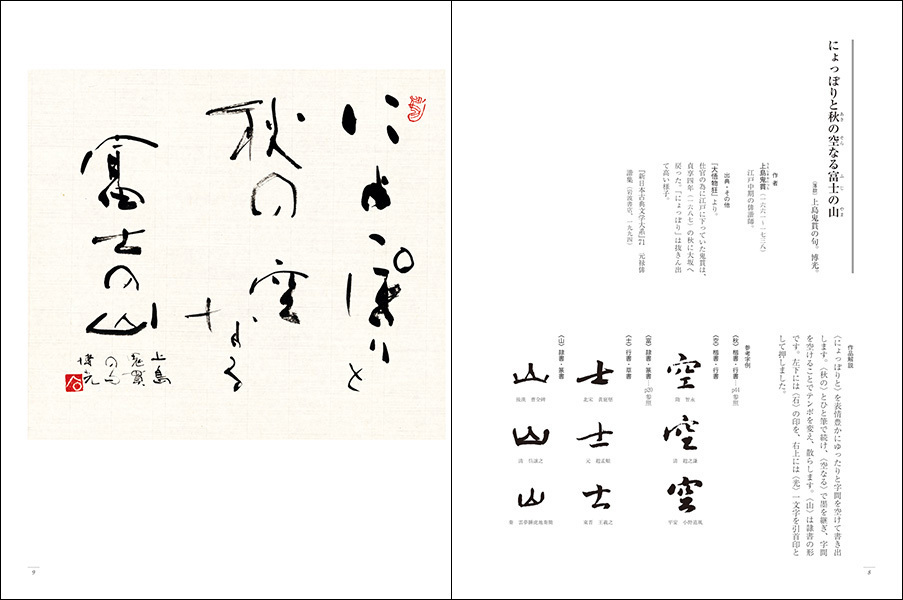 にょっぽりと秋の空なる富士の山
あき
そら
ふ
じ
やま
〈落款〉上島鬼貫の句。博光。
作者
上島鬼貫(一六六一〜一七三八)
江戸中期の俳諧師。
出典・その他
『大悟物狂』より。
仕官の為に江戸に下っていた鬼貫は、
貞享四年(一六八七)の秋に大坂へ
戻った。「にょっぽり」は抜きん出
て高い様子。
『新日本古典文学大系』71 元禄俳
諧集(岩波書店、一九九四)
作品解説
〈にょっぽりと〉を表情豊かにゆったりと字間を空けて書き出
します。〈秋の〉とひと筆で続け、〈空なる〉で墨を継ぎ、字間
を空けることでテンポを変え、散らします。〈山〉は隷書の形
です。左下には〈石〉の印を、右上には〈光〉一文字を引首印と
して押しました。
参考字例
〈秋〉楷書・行書―p44参照
〈空〉楷書・行書
空
隋 智永
空
清 趙之謙
空
平安 小野道風
〈富〉隷書・篆書―p20参照
〈士〉行書・草書
士
北宋 黄庭堅
士
元 趙孟頫
士
東晋 王羲之
〈山〉隷書・篆書
山
後漢 曹全碑
山
清 呉讓之
山
8
にょっぽりと
秋の空なる
富士の山
上島
鬼貫
の句
博光
9